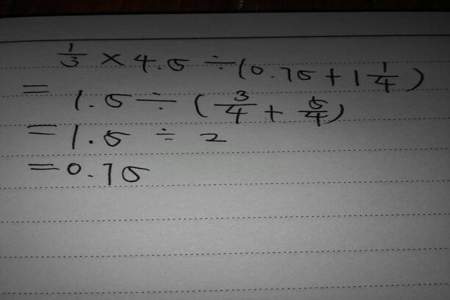 1/3 × 4.5 ÷ (0.75 + 1 1/4)
= 1.5 ÷ (3/4 + 5/4)
= 1.5 ÷ 2
= 0.75